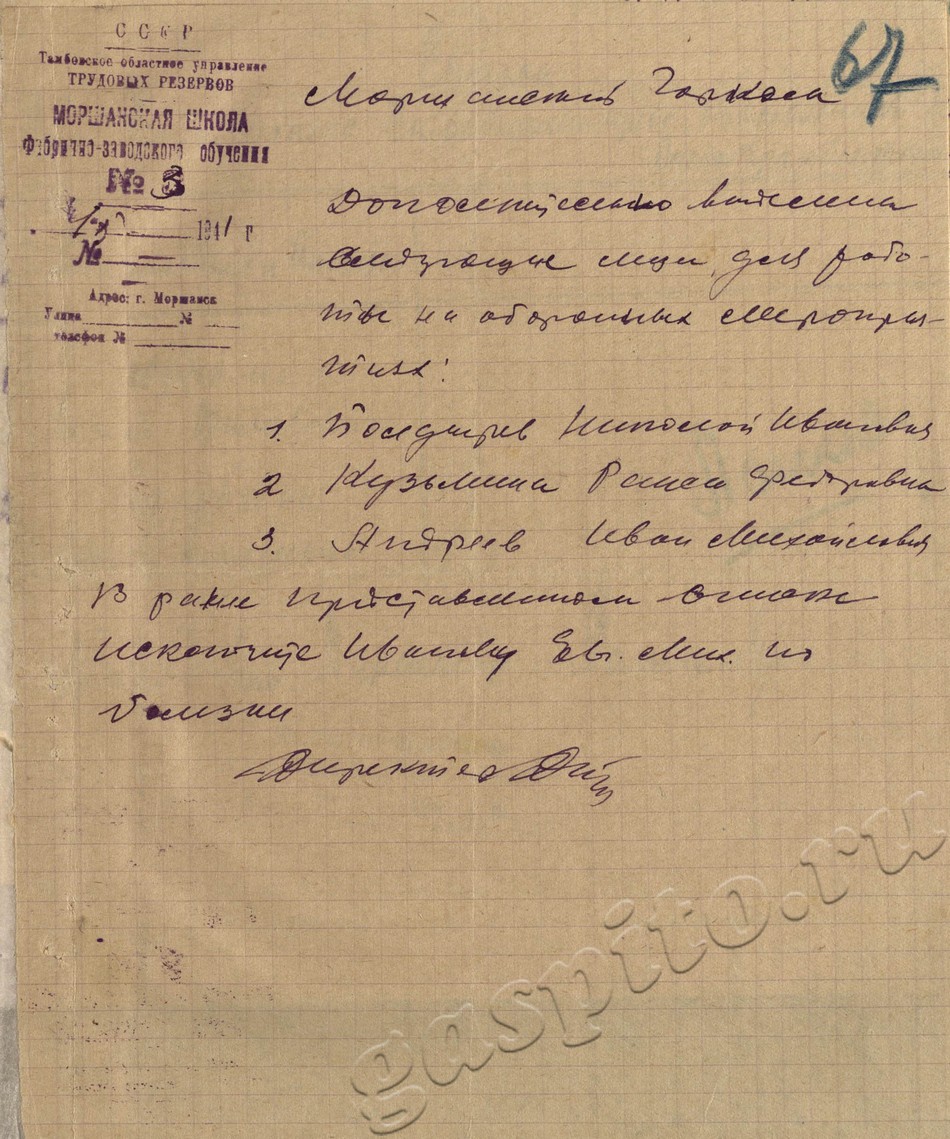 СССР
Тамбовское областное управление
ТРУДОВЫХ РЕЗЕРВОВ
МОРШАНСКАЯ ШКОЛА
Фабрично-заводского обучения
№ 3
1941 г
№
Адрес: г. Моршанск
Улица № 
телефон №
67
Дополнительно
следующие лица для рабо-
ты на оборонных меропри-
тиях:
1. Николай Иванович
2 Кузьмина Раиса Федоровна
3. Андреев Иван Михайлович
В ранее представленном списке
исключите Иванову Ев. Мих. по
болезни
Директор
gaspito.ru